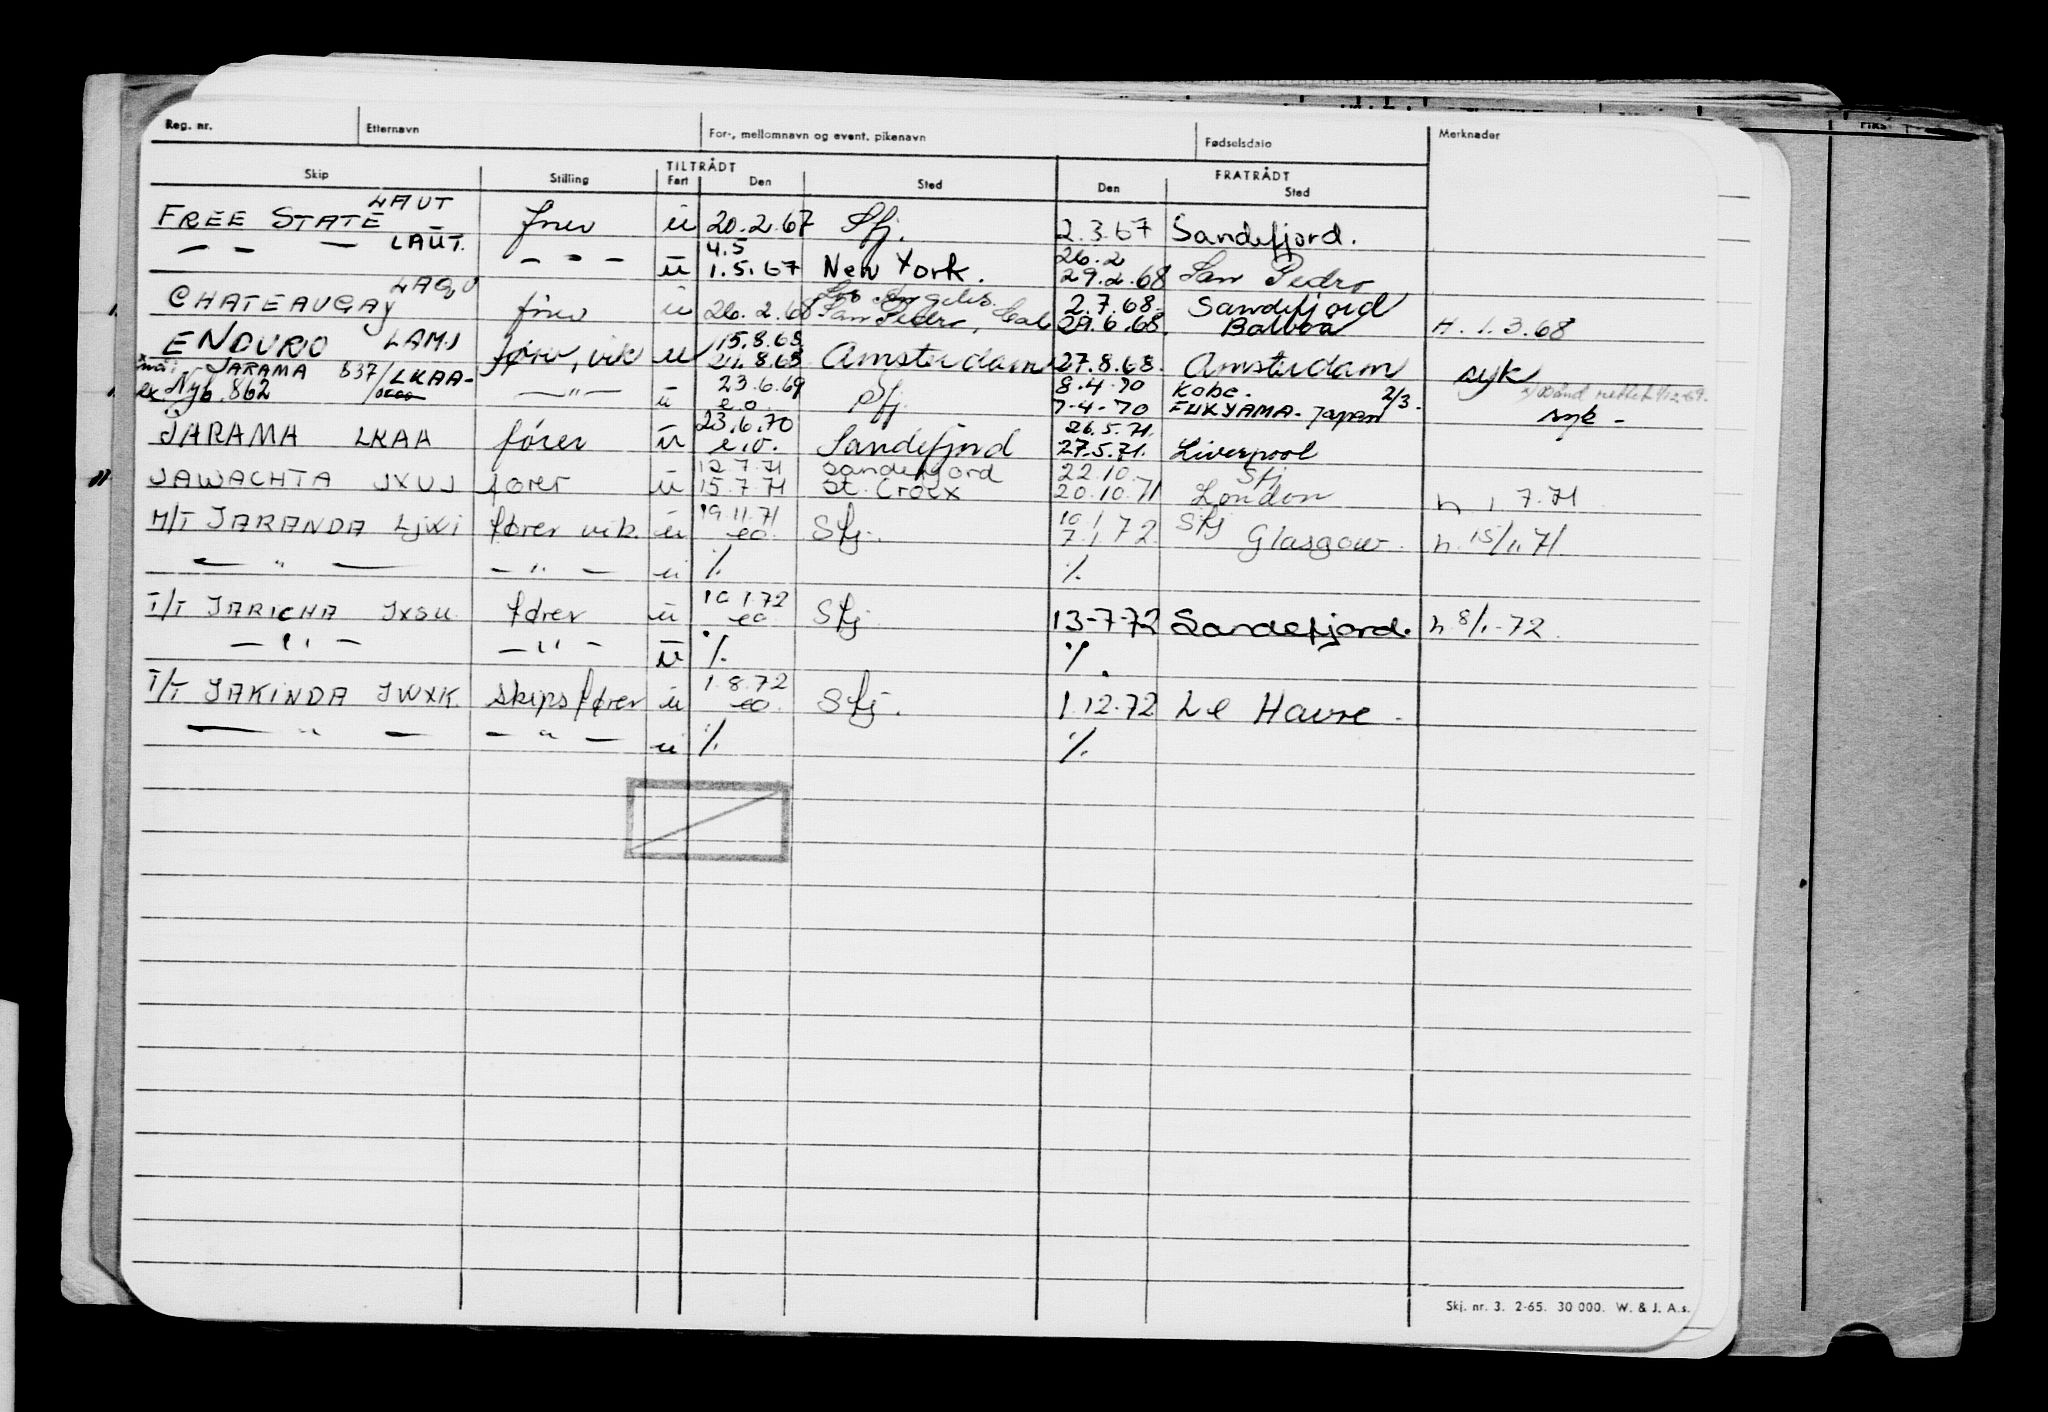 Reg. nr. Etternavn For-, mellomnavn og event. pikenavn Fødselsdato Merknader
TILTRÅDT FRATRÅDT
Skip Stilling Fart Den Sted Den Sted
LAUT
FREE STATE fører u 20.2.67 Sfj. 2.3.67 Sandefjord.
4.5 26.2
— — — LAUT. — " — u 1.5.67 New York. 29.2.68 San Pedro
LAQU Los Angeles. 2.7.68. Sandefjord
CHATEAUGAY fører u 26.2.68 San Pedro, Cal 29.6.68. Balboa H. 1.3.68
15.8.68
ENDURO LAMJ fører, vik u 21.8.68 Amsterdam 27.8.68. Amsterdam syk
JARAMA 537/LKAA- 23.6.69 8.4.70 Kobe. 2/3-
ex Nyb. 862 — " — u e.o. Sfj. 7-4-70 FUKYAMA-Japan syk -
23.6.70 26.5.71.
JARAMA LKAA fører u e.o. Sandefjord 27.5.71. Liverpool
12.7.71 Sandefjord 22.10. Sfj
JAWACHTA JXUJ fører u 15.7.71 St. Croix 20.10.71 London h 1 7.71
19.11.71 10.1 Sfj
M/T JARANDA LJWI fører vik. u eo. Sfj. 7.1.72 Glasgow. h. 15/11.71.
— " — — " — u ·/. ·/.
10.1.72
T/T JARICHA JXSU. fører u eo Sfj 13-7-72 Sandefjord. h 8/1-72.
— " — — " — u ·/. ·/.
1.8.72
T/T JAKINDA JWXK. skipsfører u eo. Sfj. 1.12.72 Le Havre.
— " — — " — u ·/. ·/.
Skj. nr. 3. 2-65. 30 000. W. & J. A.s.